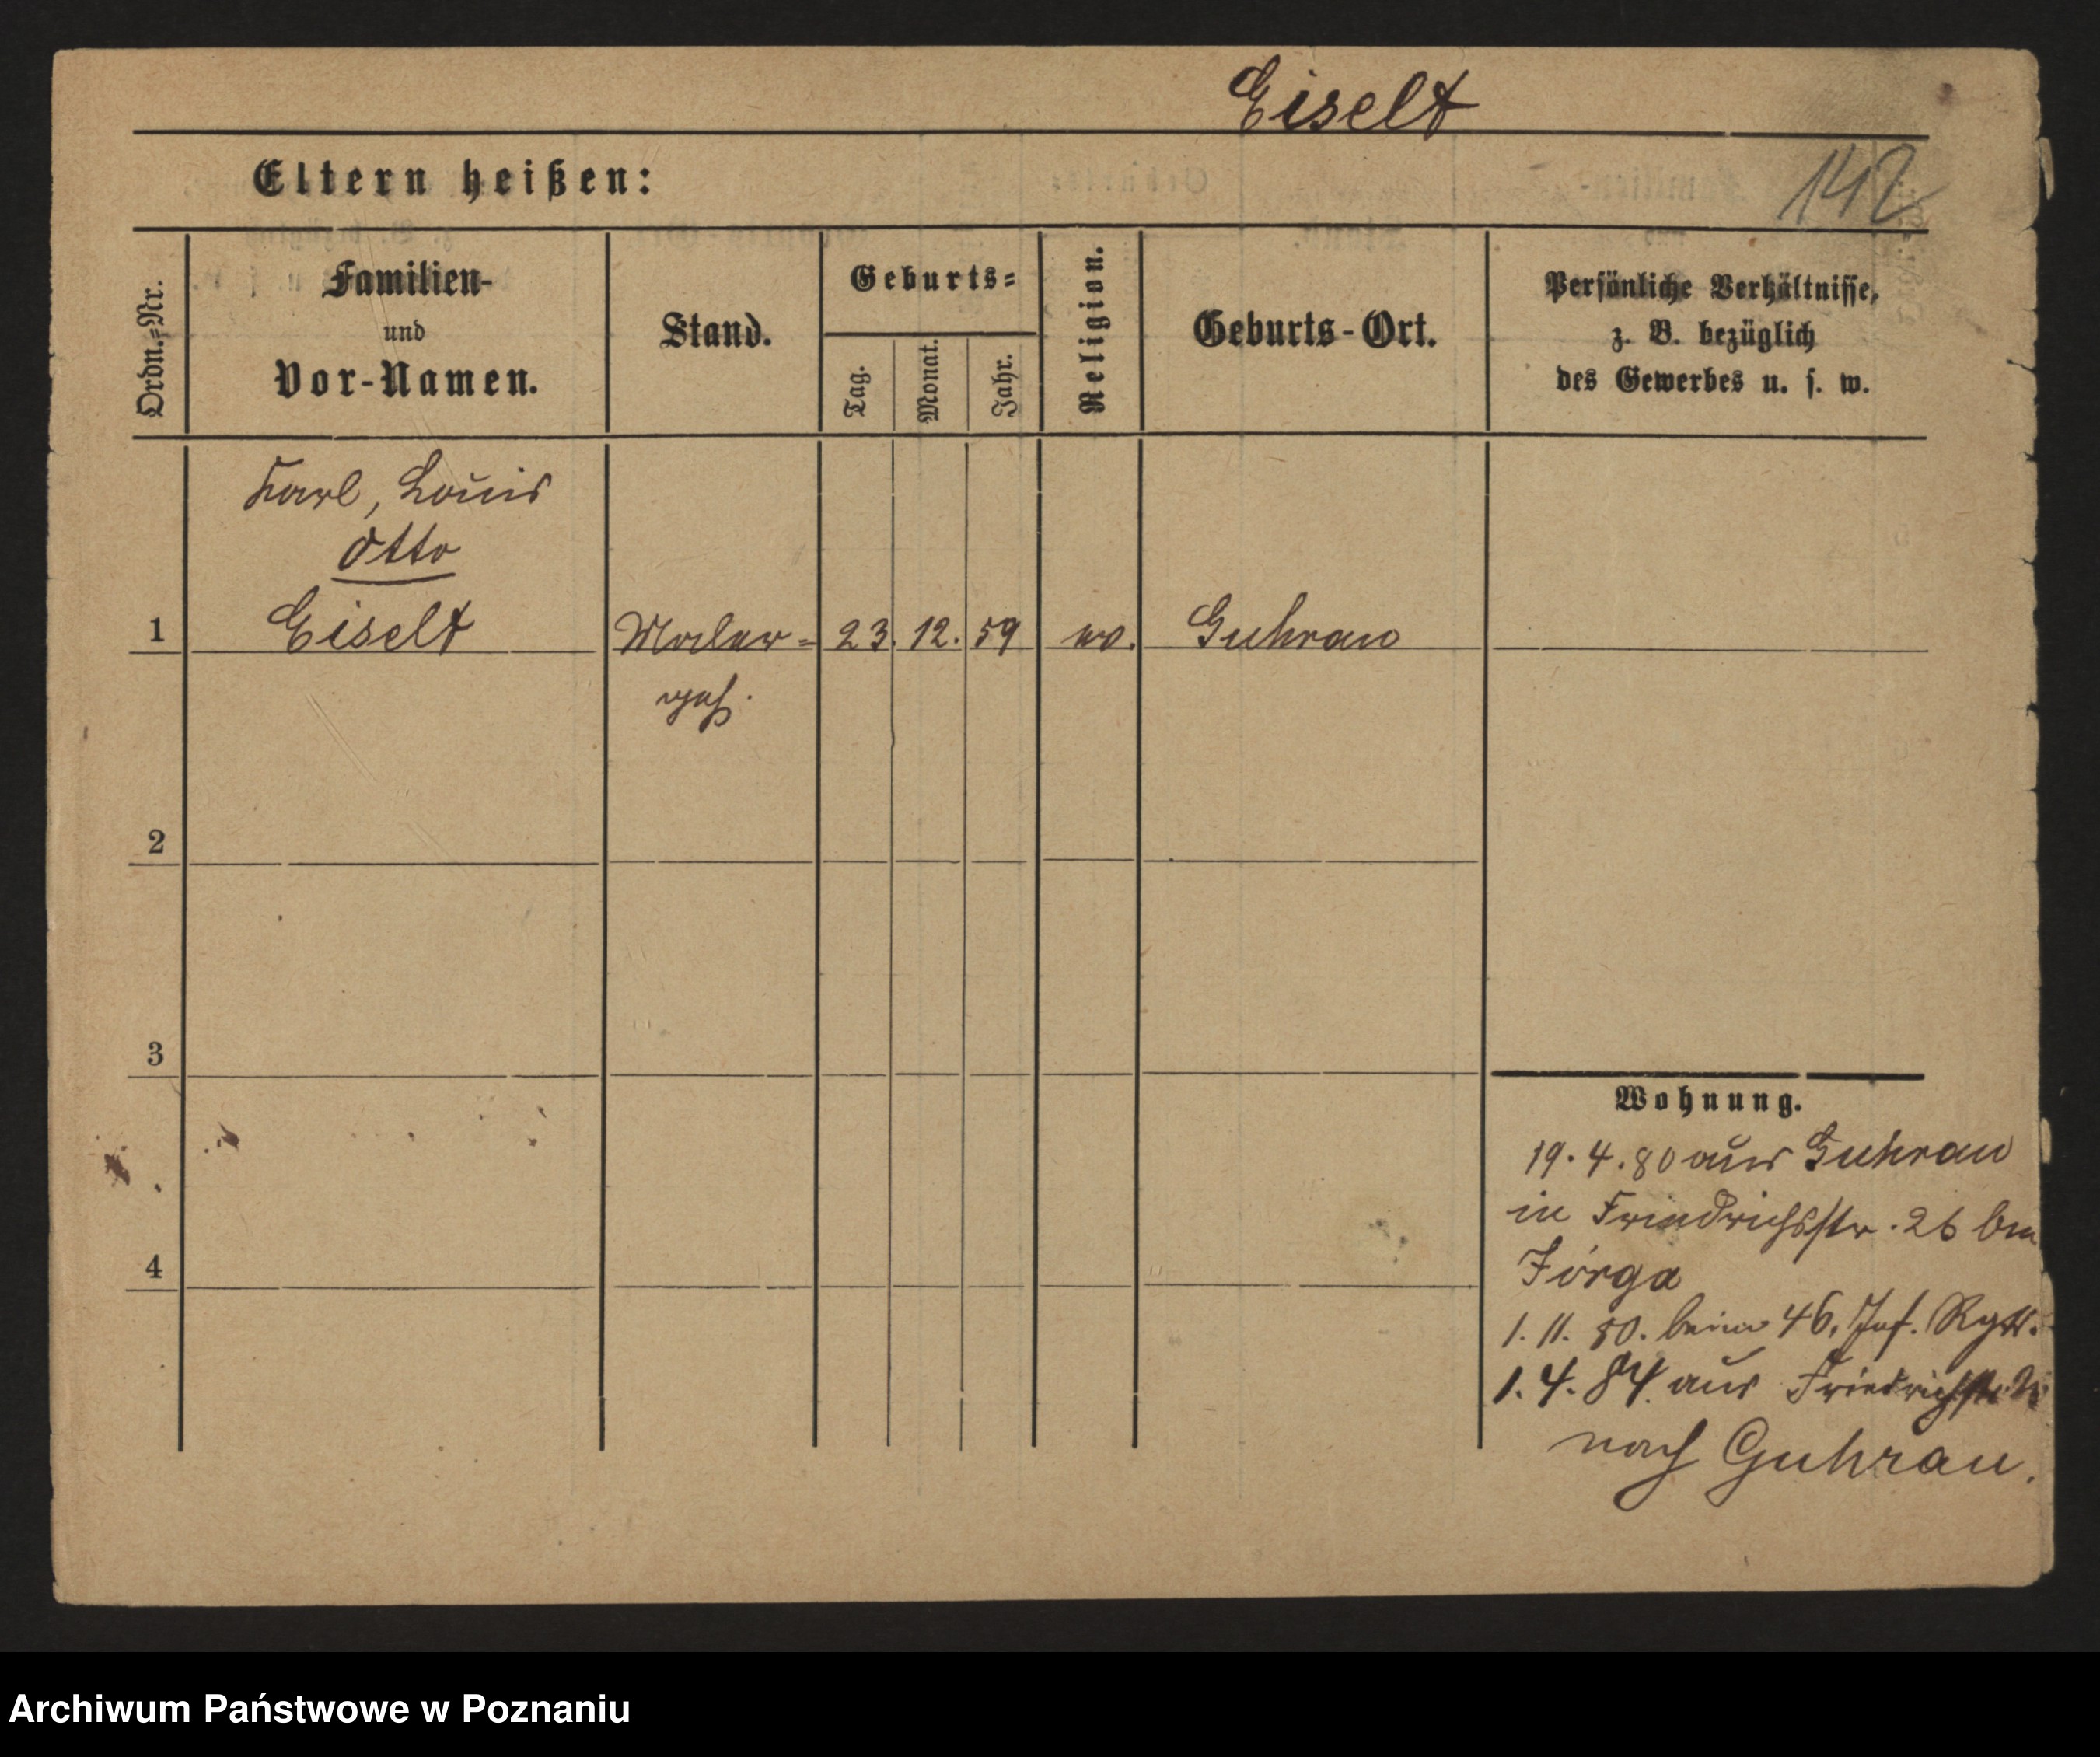 Eiselt
Eltern heißen:
142
Ordn.=Nr.
Familien-
und
Vor-Namen.
Stand.
Geburts=
Tag.
Monat.
Jahr.
Religion.
Geburts-Ort.
Persönliche Verhältnisse,
z. B. bezüglich
des Gewerbes u. s. w.
Karl, Louis
Otto
1 Eiselt Maler= 23. 12. 59 ev. Guhrau
geh.
2
3
Wohnung.
19. 4. 80 aus Guhrau
in Friedrichsstr. 26 bei
4
1. 11. 80. beim 46. Inf. Rgt.
1. 4. 84. aus Friedrichstr.
nach Guhrau.
Archiwum Państwowe w Poznaniu